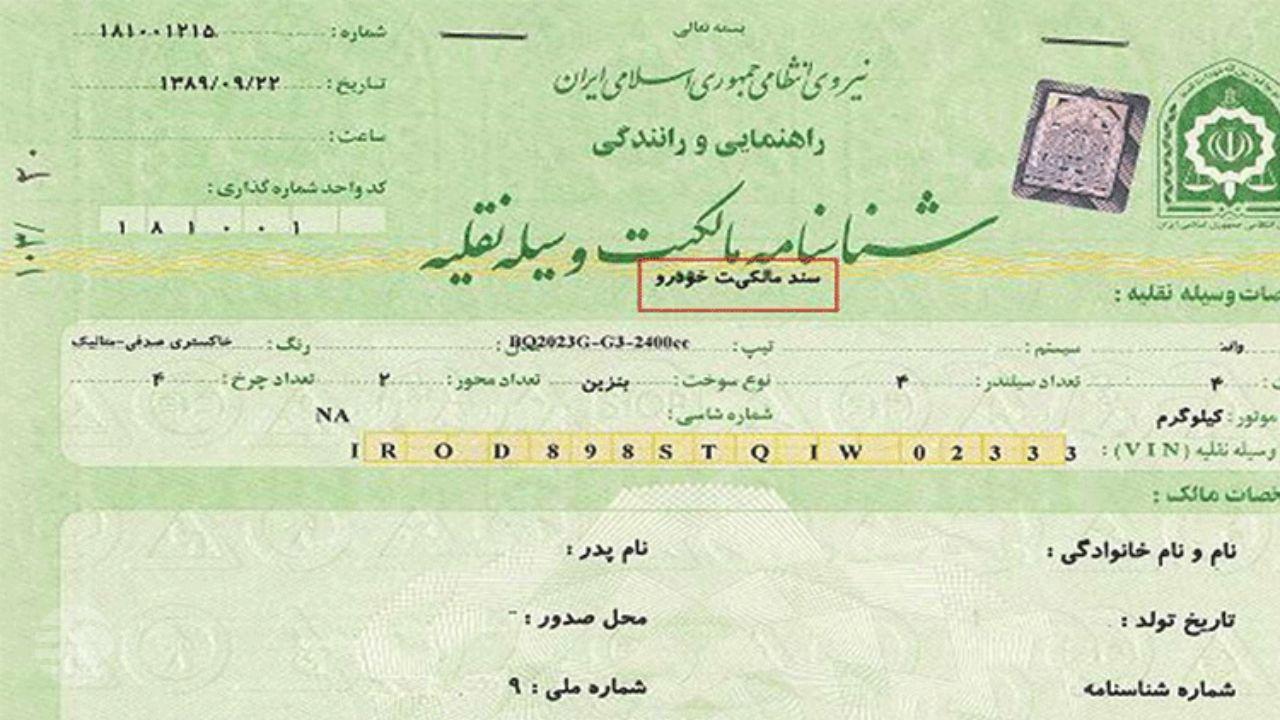 بسمه تعالی
نیروی انتظامی جمهوری اسلامی ایران
راهنمایی و رانندگی
شناسنامه مالکیت وسیله نقلیه
سند مالکیت خودرو
شماره : ۱۸۱۰۰۱۲۱۵
تاریخ : ۱۳۸۹/۰۹/۲۲
ساعت :
کد واحد شماره گذاری :
۱ ۸ ۱ ۰ ۰ ۱
۱۰۳/ ۳۰
صات وسیله نقلیه :
وانت سیستم : تیپ : BQ2023G-G3-2400cc رنگ : خاکستری صدفی-متالیک
۴ تعداد سیلندر : ۴ نوع سوخت : بنزین تعداد محور : ۲ تعداد چرخ : ۴
موتور : کیلوگرم شماره شاسی : NA
وسیله نقلیه (VIN) : I R O D 8 9 8 S T Q I W 0 2 3 3 3
خصات مالک :
نام و نام خانوادگی : نام پدر :
تاریخ تولد : محل صدور : -
شماره شناسنامه شماره ملی : ۹